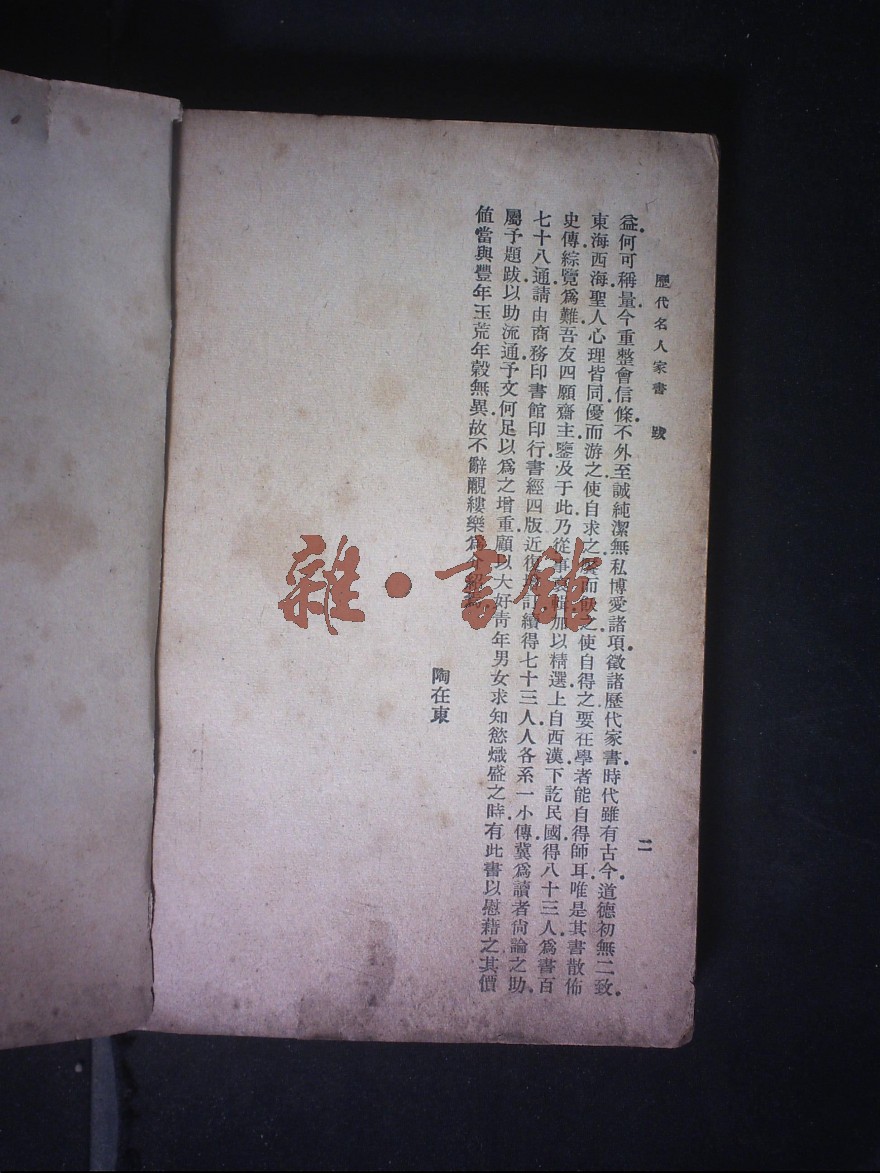 歷代名人家書　跋
二
益何可稱量今重整會信條不外至誠純潔無私博愛諸項徵諸歷代家書時代雖有古今道德初無二致
東海西海聖人心理皆同優而游之使自求之饜而飫之使自得之要在學者能自得師耳唯是其書散佈
史傳綜覽爲難吾友四願齋主鑒及于此乃從事裒輯加以精選上自西漢下訖民國得八十三人爲書百
七十八通請由商務印書館印行書經四版近復訂續得七十三人人各系一小傳冀爲讀者尙論之助
屬予題跋以助流通予文何足以爲之增重顧以大好靑年男女求知慾熾盛之時有此書以慰藉之其價
値當與豐年玉荒年穀無異故不辭覼縷樂爲介紹焉
陶在東
雜·書館